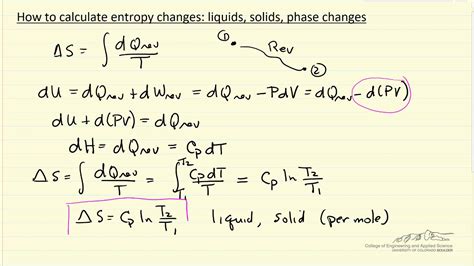 How to calculate entropy changes: liquids, solids, phase changes
ΔS = ∫ dQrev/T
① Rev ②
dU = dQrev + dWrev = dQrev - PdV = dQrev - d(PV)
dU + d(PV) = dQrev
dH = dQrev = CpdT
ΔS = ∫ dQrev/T = ∫T₁T₂ CpdT/T = Cp ln T₂/T₁
ΔS = Cp ln T₂/T₁ liquid, solid (per mole)
College of Engineering and Applied Science
UNIVERSITY OF COLORADO BOULDER